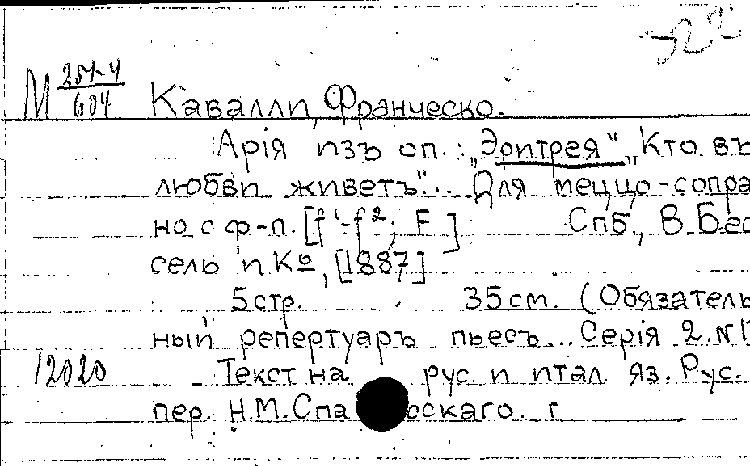 М 254-4
604
Кавалли, Франческо.
Арія изъ оп.: „Эритрея" „Кто въ
любви живетъ"... Для меццо-сопра
но с ф-п. [f¹-f²; F] Спб., В. Бес
сель и Кº, [1887]
5 стр. 35 см. (Обязатель
ный репертуаръ пьесъ... Серія 2. №
12020 Текст на рус и итал яз. Рус.
пер. Н.М. Спа скаго. г.